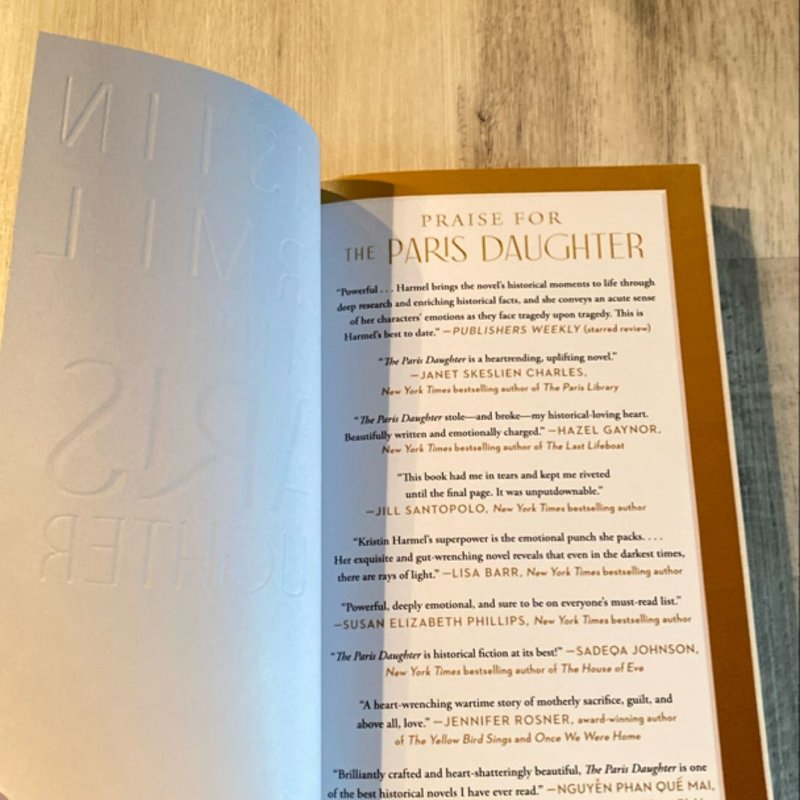 PRAISE FOR
THE PARIS DAUGHTER
“Powerful . . . Harmel brings the novel’s historical moments to life through
deep research and enriching historical facts, and she conveys an acute sense
of her characters’ emotions as they face tragedy upon tragedy. This is
Harmel’s best to date.” —PUBLISHERS WEEKLY (starred review)
“The Paris Daughter is a heartrending, uplifting novel.”
—JANET SKESLIEN CHARLES,
New York Times bestselling author of The Paris Library
“The Paris Daughter stole—and broke—my historical-loving heart.
Beautifully written and emotionally charged.” —HAZEL GAYNOR,
New York Times bestselling author of The Last Lifeboat
“This book had me in tears and kept me riveted
until the final page. It was unputdownable.”
—JILL SANTOPOLO, New York Times bestselling author
“Kristin Harmel’s superpower is the emotional punch she packs. . . .
Her exquisite and gut-wrenching novel reveals that even in the darkest times,
there are rays of light.” —LISA BARR, New York Times bestselling author
“Powerful, deeply emotional, and sure to be on everyone’s must-read list.”
—SUSAN ELIZABETH PHILLIPS, New York Times bestselling author
“The Paris Daughter is historical fiction at its best!” —SADEQA JOHNSON,
New York Times bestselling author of The House of Eve
“A heart-wrenching wartime story of motherly sacrifice, guilt, and
above all, love.” —JENNIFER ROSNER, award-winning author
of The Yellow Bird Sings and Once We Were Home
“Brilliantly crafted and heart-shatteringly beautiful, The Paris Daughter is one
of the best historical novels I have ever read.” —NGUYỄN PHAN QUẾ MAI,